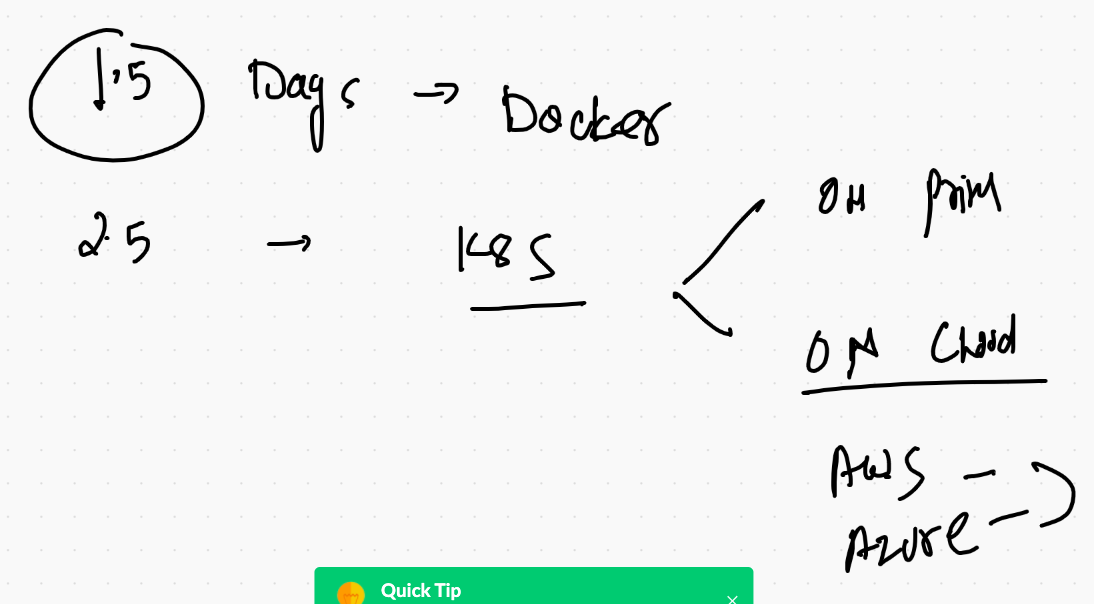 1.5 Days → Docker
2.5 → K8S
ON Prim
ON Cloud
AWS -
Azure -
Quick Tip